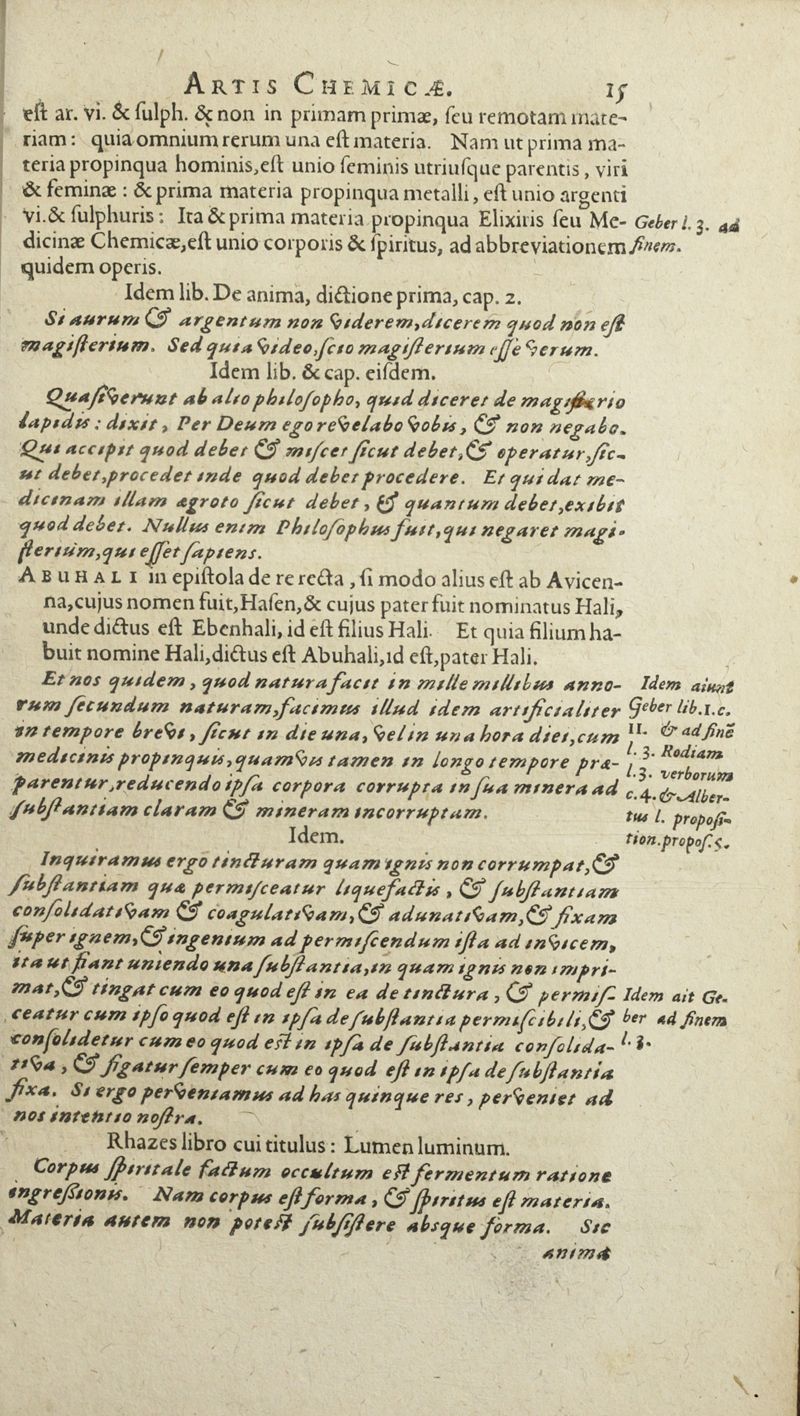 ARTIS CHEMICÆ. 15
est ar. vi. & sulph. & non in primam primæ, seu remotam mate-
riam: quia omnium rerum una est materia. Nam ut prima ma-
teria propinqua hominis, est unio seminis utriusque parentis, viri
& feminæ: & prima materia propinqua metalli, est unio argenti
vi. & sulphuris: Ita & prima materia propinqua Elixiris seu Me-
dicinæ Chemicæ, est unio corporis & spiritus, ad abbreviationem
quidem operis.
Geber l. 3. ad
finem.
Idem lib. De anima, dictione prima, cap. 2.
Si aurum & argentum non viderem, dicerem quod non est
magisterium. Sed quia video, scio magisterium esse verum.
Idem lib. & cap. eisdem.
Quæsiverunt ab alio philosopho, quid diceret de magisterio
lapidis: dixit, Per Deum ego revelabo vobis, & non negabo.
Qui accipit quod debet & miscet sicut debet, & operatur, sic-
ut debet, procedet inde quod debet procedere. Et qui dat me-
dicinam illam ægroto sicut debet, & quantum debet, exibit
quod debet. Nullus enim Philosophus fuit, qui negaret magi-
sterium, qui esset sapiens.
ABUHALI in epistola de re recta, si modo alius est ab Avicen-
na, cujus nomen fuit, Hasen, & cujus pater fuit nominatus Hali,
unde dictus est Ebenhali, id est filius Hali. Et quia filium ha-
buit nomine Hali, dictus est Abuhali, id est, pater Hali.
Et nos quidem, quod natura facit in mille millibus anno-
rum secundum naturam, facimus illud idem artificialiter
in tempore brevi, sicut in die una, vel in una hora diei, cum
medicinis propinquis, quamvis tamen in longo tempore præ-
parentur, reducendo ipsa corpora corrupta in sua minera ad
substantiam claram & mineram incorruptam.
Idem aiunt
Geber lib. 1. c.
11. & ad finē
l. 3. Rodiam
l. 3. verborum
c. 4. & Alber-
tus l. proposi-
tion. propos. 5.
Idem.
Inquiramus ergo tincturam quam ignis non corrumpat, &
substantiam quæ permisceatur liquefactis, & substantiam
consolidativam & coagulativam, & adunativam, & fixam
super ignem, & ingenium ad permiscendum ista ad invicem,
ita ut fiant uniendo una substantia, in quam ignis non impri-
mat, & tingat cum eo quod est in ea de tinctura, & permis-
ceatur cum ipso quod est in ipsa de substantia permiscibili, &
consolidetur cum eo quod est in ipsa de substantia consolida-
tiva, & figatur semper cum eo quod est in ipsa de substantia
fixa. Si ergo perveniamus ad has quinque res, perveniet ad
nos intentio nostra.
Idem ait Ge-
ber ad finem
l. 3.
Rhazes libro cui titulus: Lumen luminum.
Corpus spiritale factum occultum est fermentum ratione
ingressionis. Nam corpus est forma, & spiritus est materia.
Materia autem non potest subsistere absque forma. Sic
anima